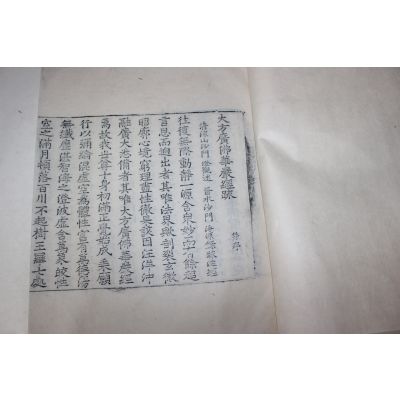 大方廣佛華嚴經疏
清涼山沙門 澄觀述 晉水沙門 淨源錄疏注經
往復無際動靜一源含衆妙而有餘超
言思而逈出者其唯法界歟剖裂玄微
昭廓心境窮理盡性徹果該因汪洋冲
融廣大悉備者其唯大方廣佛華嚴經
焉故我世尊十身初滿正覺始成乘願
行以彌綸混虛空爲體性富有萬德蕩
無纖塵湛智海之澄波虛含萬象皎性
空之滿月頓落百川不起樹王羅七處